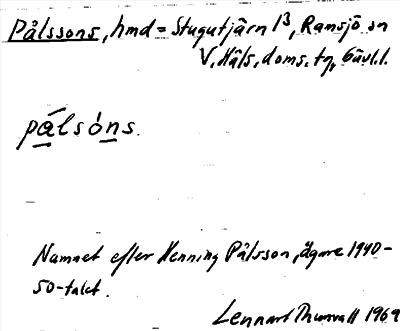 Pålssons, hmd = Stugutjärn 1³, Ramsjö sn
V. Häls. doms. tg, Gävl.l.
pålsóns.
Namnet efter Henning Pålsson, ägare 1940-
50-talet.
Lennart Thurvall 1969